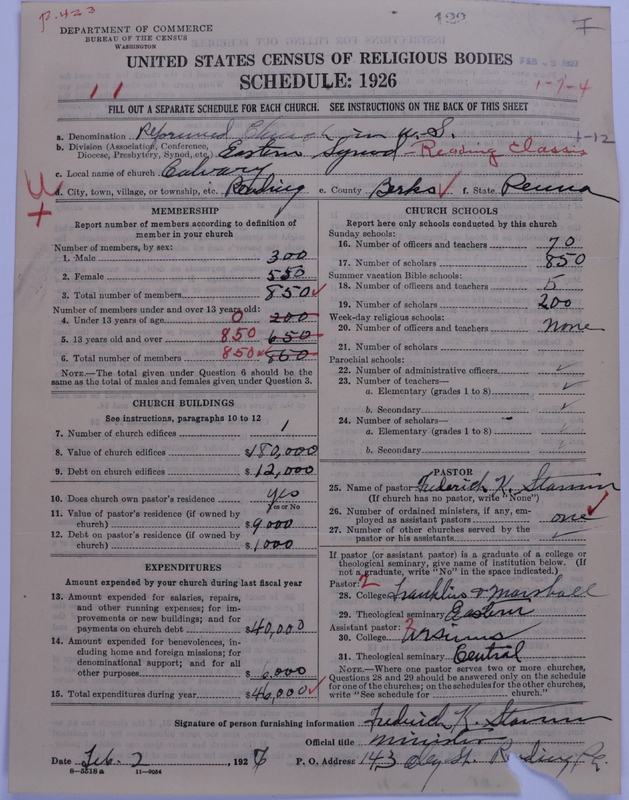 P.423
129
I
DEPARTMENT OF COMMERCE
BUREAU OF THE CENSUS
WASHINGTON
UNITED STATES CENSUS OF RELIGIOUS BODIES
SCHEDULE: 1926
11
1-7-4
FILL OUT A SEPARATE SCHEDULE FOR EACH CHURCH. SEE INSTRUCTIONS ON THE BACK OF THIS SHEET
a. Denomination Reformed Church in U.S.
b. Division (Association, Conference, Diocese, Presbytery, Synod, etc.) Eastern Synod - Reading Classis
c. Local name of church Calvary
d. City, town, village, or township, etc. Reading e. County Berks f. State Penna
MEMBERSHIP
Report number of members according to definition of member in your church
Number of members, by sex:
1. Male 300
2. Female 550
3. Total number of members 850
Number of members under and over 13 years old:
4. Under 13 years of age 0 200
5. 13 years old and over 850 650
6. Total number of members 850 860
NOTE.—The total given under Question 6 should be the same as the total of males and females given under Question 3.
CHURCH BUILDINGS
See instructions, paragraphs 10 to 12
7. Number of church edifices 1
8. Value of church edifices $180,000
9. Debt on church edifices $12,000
10. Does church own pastor's residence yes
Yes or No
11. Value of pastor's residence (if owned by church) $9000
12. Debt on pastor's residence (if owned by church) $1000
EXPENDITURES
Amount expended by your church during last fiscal year
13. Amount expended for salaries, repairs, and other running expenses; for improvements or new buildings; and for payments on church debt $40,000
14. Amount expended for benevolences, including home and foreign missions; for denominational support; and for all other purposes $6,000
15. Total expenditures during year $46,000
CHURCH SCHOOLS
Report here only schools conducted by this church
Sunday schools:
16. Number of officers and teachers 70
17. Number of scholars 850
Summer vacation Bible schools:
18. Number of officers and teachers 5
19. Number of scholars 200
Week-day religious schools:
20. Number of officers and teachers none
21. Number of scholars
Parochial schools:
22. Number of administrative officers
23. Number of teachers—
a. Elementary (grades 1 to 8)
b. Secondary
24. Number of scholars—
a. Elementary (grades 1 to 8)
b. Secondary
PASTOR
25. Name of pastor Frederick K. Stamm
(If church has no pastor, write "None")
26. Number of ordained ministers, if any, employed as assistant pastors one
27. Number of other churches served by the pastor or his assistants
If pastor (or assistant pastor) is a graduate of a college or theological seminary, give name of institution below. (If not a graduate, write "No" in the space indicated.)
Pastor: 2
28. College Franklin & Marshall
29. Theological seminary Eastern
Assistant pastor: 2
30. College Ursinus
31. Theological seminary Central
NOTE.—Where one pastor serves two or more churches, Questions 28 and 29 should be answered only on the schedule for one of the churches; on the schedules for the other churches, write "See schedule for church."
Signature of person furnishing information Frederick K. Stamm
Official title minister
Date Feb. 2, 1927 P. O. Address 143 Oley St. Reading Pa.
8—5518a 11—9054